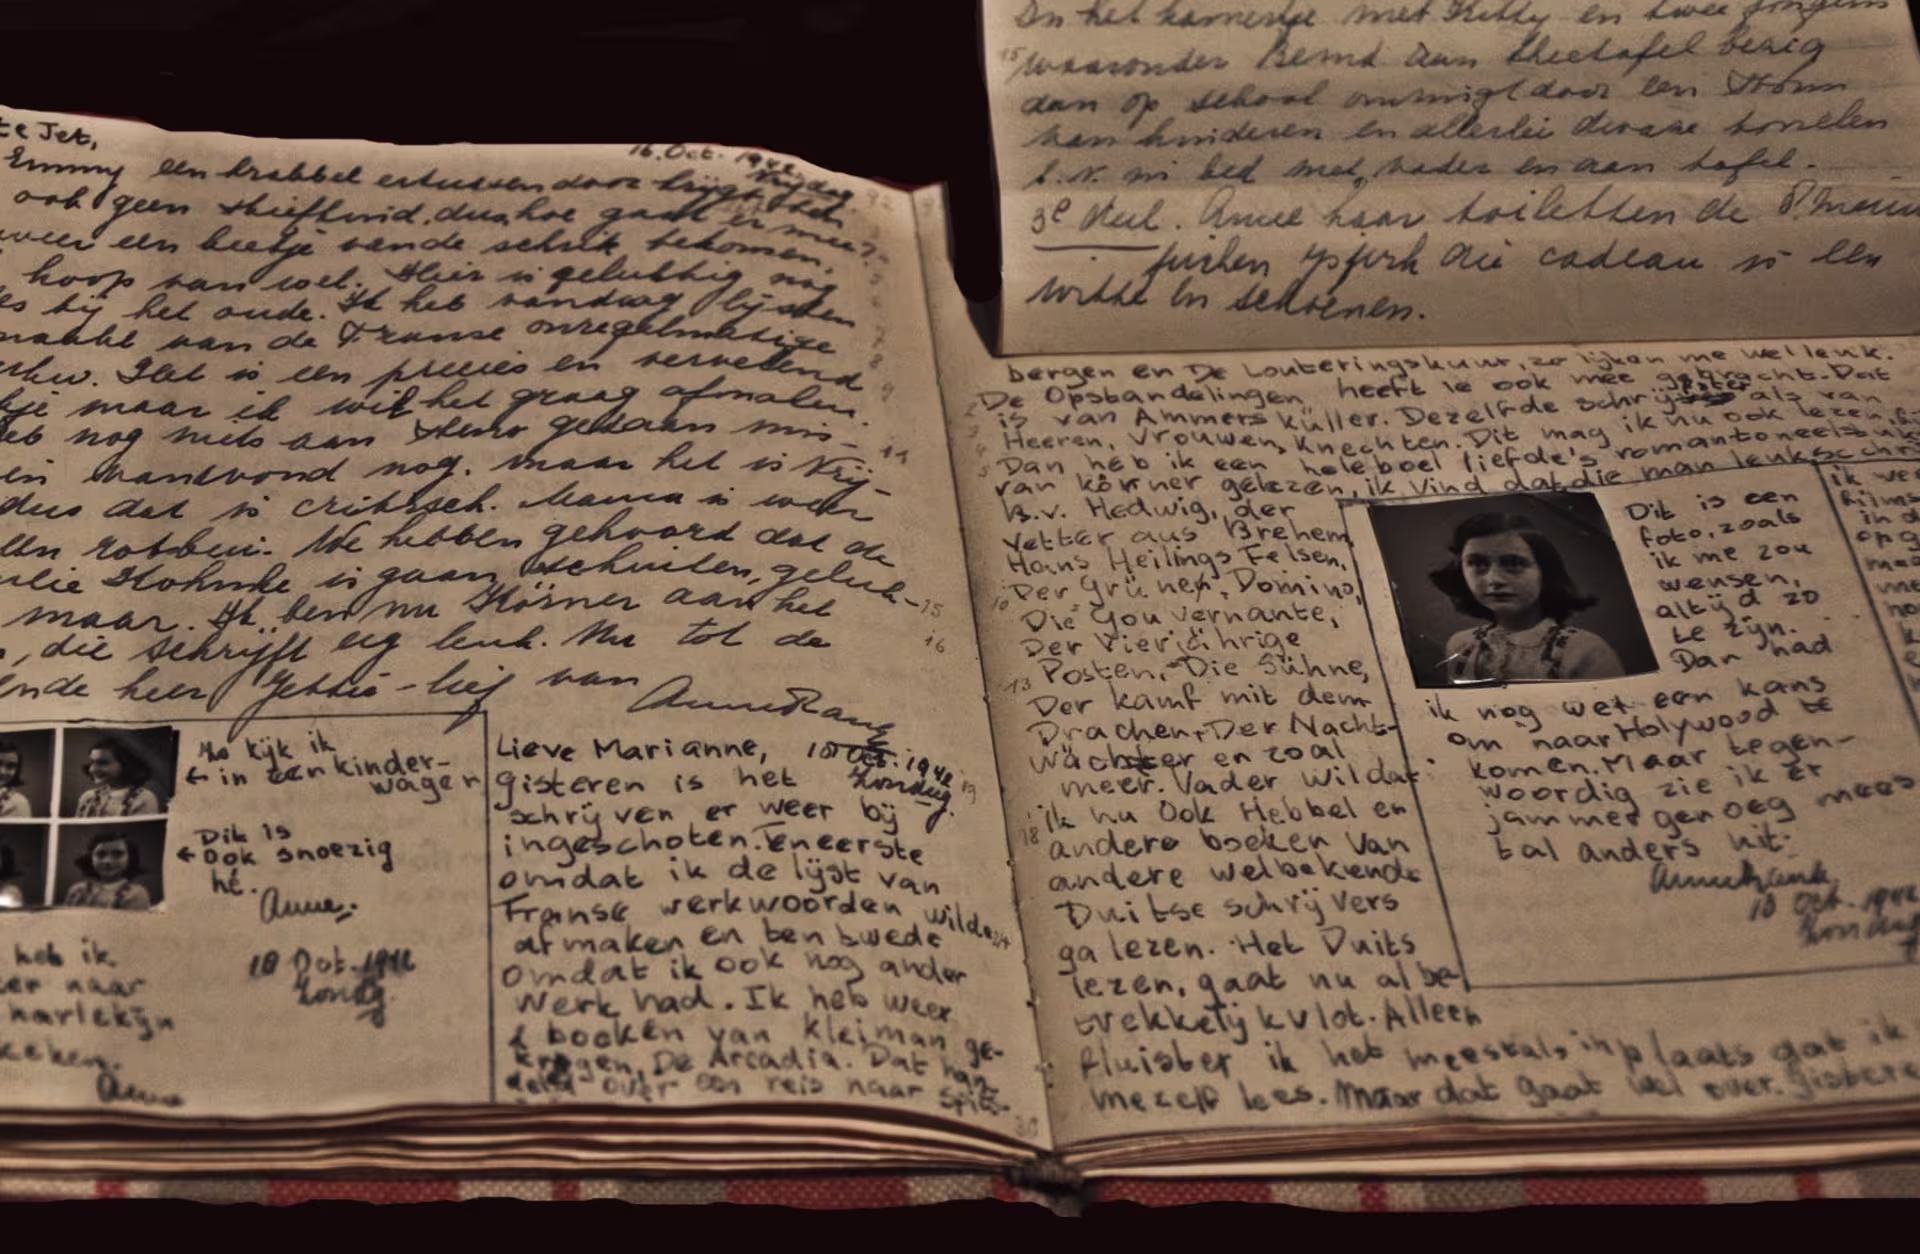 te Jet,
16. Oct. 1942
Vrijdag
Emmy een krabbel ertussendoor krijgt
ook geen stiefkind, dus hoe gaat er mee?
weer een beetje van de schrik bekomen,
hoop van wel. Hier is gelukkig nog
es bij het oude. Ik heb vandaag lijsten
maakt van de Franse onregelmatige
Het is een precies en vervelend
je maar ik wil het graag afmaken
eb nog niets aan steno gedaan mis-
in vanavond nog. maar het is Vrij-
dus dat is critisch. Mama is weer
een We hebben gehoord dat de
ilie Kohnke is gaan schuilen, geluk-
maar. Ik ben nu Körner aan het
, die schrijft erg leuk. Nu tot de
ende keer Jettie-lief van
Anne Frank
Zo kijk ik
← in een kinder-
wagen
Dit is
← ook snoezig
hè.
Anne.
18 Oct. 1942
Zondg.
heb ik
er naar
harlekijn
keken.
Anne
Lieve Marianne, 18 Oct. 1942
Gisteren is het Zondag.
schrijven er weer bij
ingeschoten. Teneerste
omdat ik de lijst van
Franse werkwoorden wilde
afmaken en ten twede
omdat ik ook nog ander
Werk had. Ik heb weer
2 boeken van Kleiman ge-
kregen, De Arcadia. Dat han-
delt over een reis naar Spits-
In het kamertje met Kitty en twee jongens
waaronder Bernd aan theetafel bezig
dan op school omringd door een
van kinderen en allerlei dwaze
b.v. in bed met vader en aan tafel.
3e deel. Anne haar toiletten de
die cadeau is een
witte en schoenen.
bergen en De Louteringskuur, zo lijken me wel leuk.
De Opstandelingen heeft ie ook mee gebracht. Dat
is van Ammers Küller. Dezelfde schrijfster als van
Heeren, Vrouwen, Knechten. Dit mag ik nu ook lezen, fijn
Dan heb ik een heleboel liefde's romantoneelstuk
van Körner gelezen, ik vind dat die man leuk schr
B.v. Hedwig, der
Vetter aus Brehem,
Hans Heilings Felsen,
Der Grüner, Domino,
Die Gouvernante,
Der Vierjährige
Posten, Die Sühne,
Der kamf mit dem
Drachen, Der Nacht-
wächter en zoal
meer. Vader wil dat
ik nu ook Hebbel en
andere boeken van
andere welbekende
Duitse schrijvers
ga lezen. Het Duits
lezen, gaat nu al be-
trekkelijk vlot. Alleen
fluister ik het meestal, in plaats dat ik
mezelf lees. Maar dat gaat wel over. Gistere
Dit is een
foto, zoals
ik me zou
wensen,
altijd zo
te zijn.
Dan had
ik nog wel een kans
om naar Holywood te
komen. Maar tegen-
woordig zie ik er
jammer genoeg mees
tal anders uit.
Annefrank.
18 Oct. 1942
Zondag